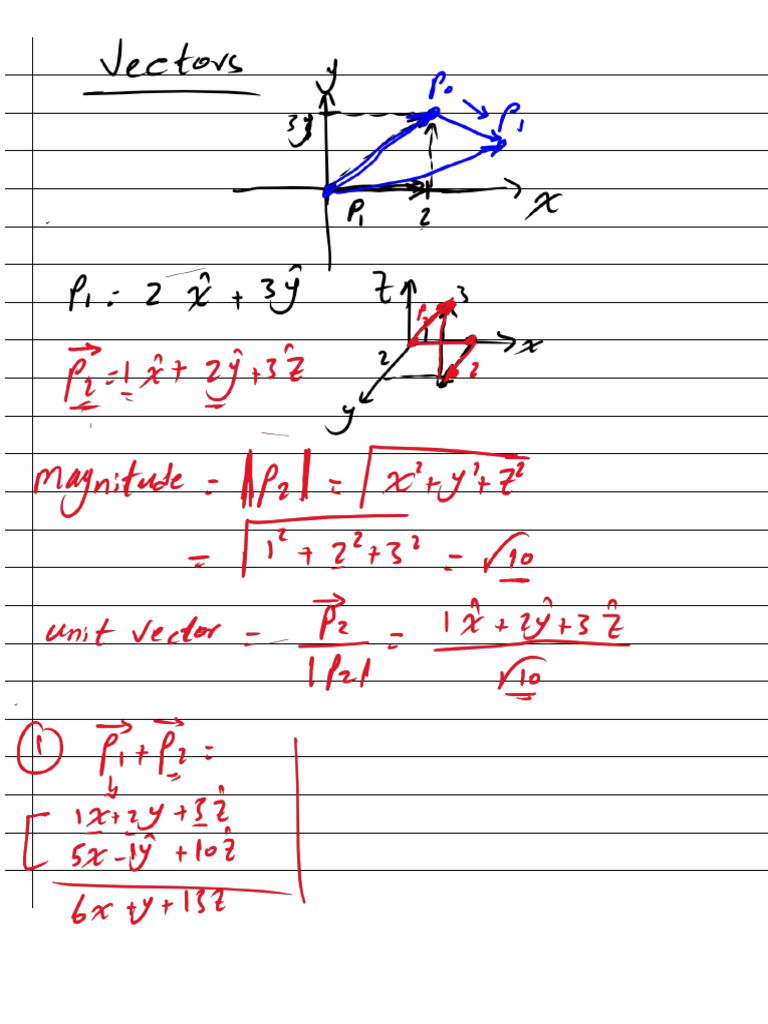 Vectors
y
P₀
P₁
3y
x
P₁
2
P₁ = 2 x̂ + 3ŷ
z
3
P₂
1
x
2
2
y
P⃗₂ = 1 x̂ + 2ŷ + 3ẑ
magnitude = |P₂| = √x² + y² + z²
= √1² + 2² + 3² = √10
unit vector = P⃗₂ / |P₂| = 1x̂ + 2ŷ + 3ẑ / √10
① P⃗₁ + P⃗₂ =
1x + 2y + 3ẑ
5x - 1ŷ + 10ẑ
6x + y + 13z